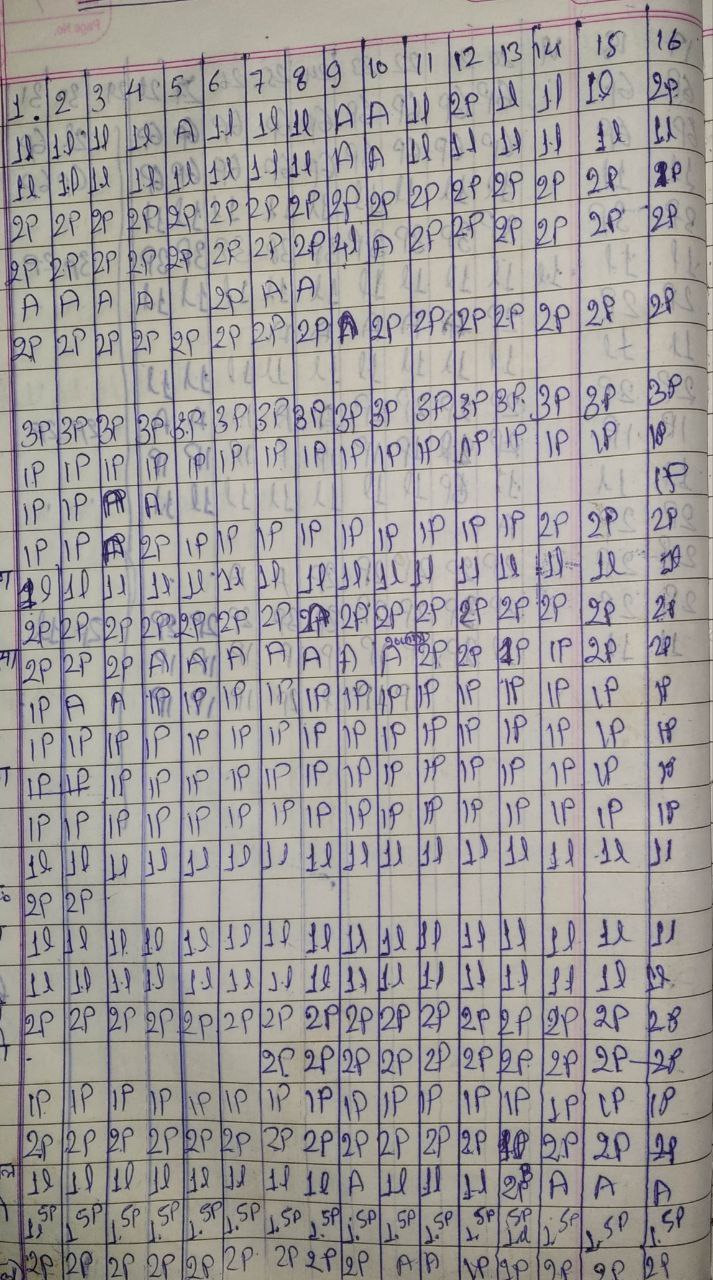 Page No.
1. 2 3 4 5 6 7 8 9 10 11 12 13 14 15 16
1l 1l 1l 1l A 1l 1l 1l A A 1l 2P 1l 1l 1l 2P
1l 1l 1l 1l 1l 1l 1l 1l A A 1l 1l 1l 1l 1l 1l
2P 2P 2P 2P 2P 2P 2P 2P 2P 2P 2P 2P 2P 2P 2P
2P 2P 2P 2P 2P 2P 2P 2P A 2P 2P 2P 2P 2P 2P
A A A A 2P A A
2P 2P 2P 2P 2P 2P 2P 2P A 2P 2P 2P 2P 2P 2P 2P
3P 3P 3P 3P 3P 3P 3P 3P 3P 3P 3P 3P 3P 3P 3P 3P
1P 1P 1P 1P 1P 1P 1P 1P 1P 1P 1P 1P 1P 1P 1P 1P
1P 1P A A 1P
1P 1P A 2P 1P 1P 1P 1P 1P 1P 1P 1P 1P 2P 2P 2P
1l 1l 1l 1l 1l 1l 1l 1l 1l 1l 1l 1l 1l 1l 1l
2P 2P 2P 2P 2P 2P 2P 2P 2P 2P 2P 2P 2P 2P 2P
2P 2P 2P A A A A A A A 2P 2P 1P 1P 2P 2P
1P A A 1P 1P 1P 1P 1P 1P 1P 1P 1P 1P 1P 1P 1P
1P 1P 1P 1P 1P 1P 1P 1P 1P 1P 1P 1P 1P 1P 1P 1P
1P 1P 1P 1P 1P 1P 1P 1P 1P 1P 1P 1P 1P 1P 1P
1P 1P 1P 1P 1P 1P 1P 1P 1P 1P 1P 1P 1P 1P 1P 1P
1l 1l 1l 1l 1l 1l 1l 1l 1l 1l 1l 1l 1l 1l 1l 1l
2P 2P
1l 1l 1l 1l 1l 1l 1l 1l 1l 1l 1l 1l 1l 1l 1l 1l
1l 1l 1l 1l 1l 1l 1l 1l 1l 1l 1l 1l 1l 1l 1l 1l
2P 2P 2P 2P 2P 2P 2P 2P 2P 2P 2P 2P 2P 2P 2P 2P
2P 2P 2P 2P 2P 2P 2P 2P 2P 2P
1P 1P 1P 1P 1P 1P 1P 1P 1P 1P 1P 1P 1P 1P 1P 1P
2P 2P 2P 2P 2P 2P 2P 2P 2P 2P 2P 2P 2P 2P 2P
1l 1l 1l 1l 1l 1l 1l 1l A 1l 1l 1l 2P A A A
1.5P 1.5P 1.5P 1.5P 1.5P 1.5P 1.5P 1.5P 1.5P 1.5P 1.5P 1.5P 1.5P 1.5P 1.5P
2P 2P 2P 2P 2P 2P 2P 2P 2P A A 1P 2P 2P 2P 2P